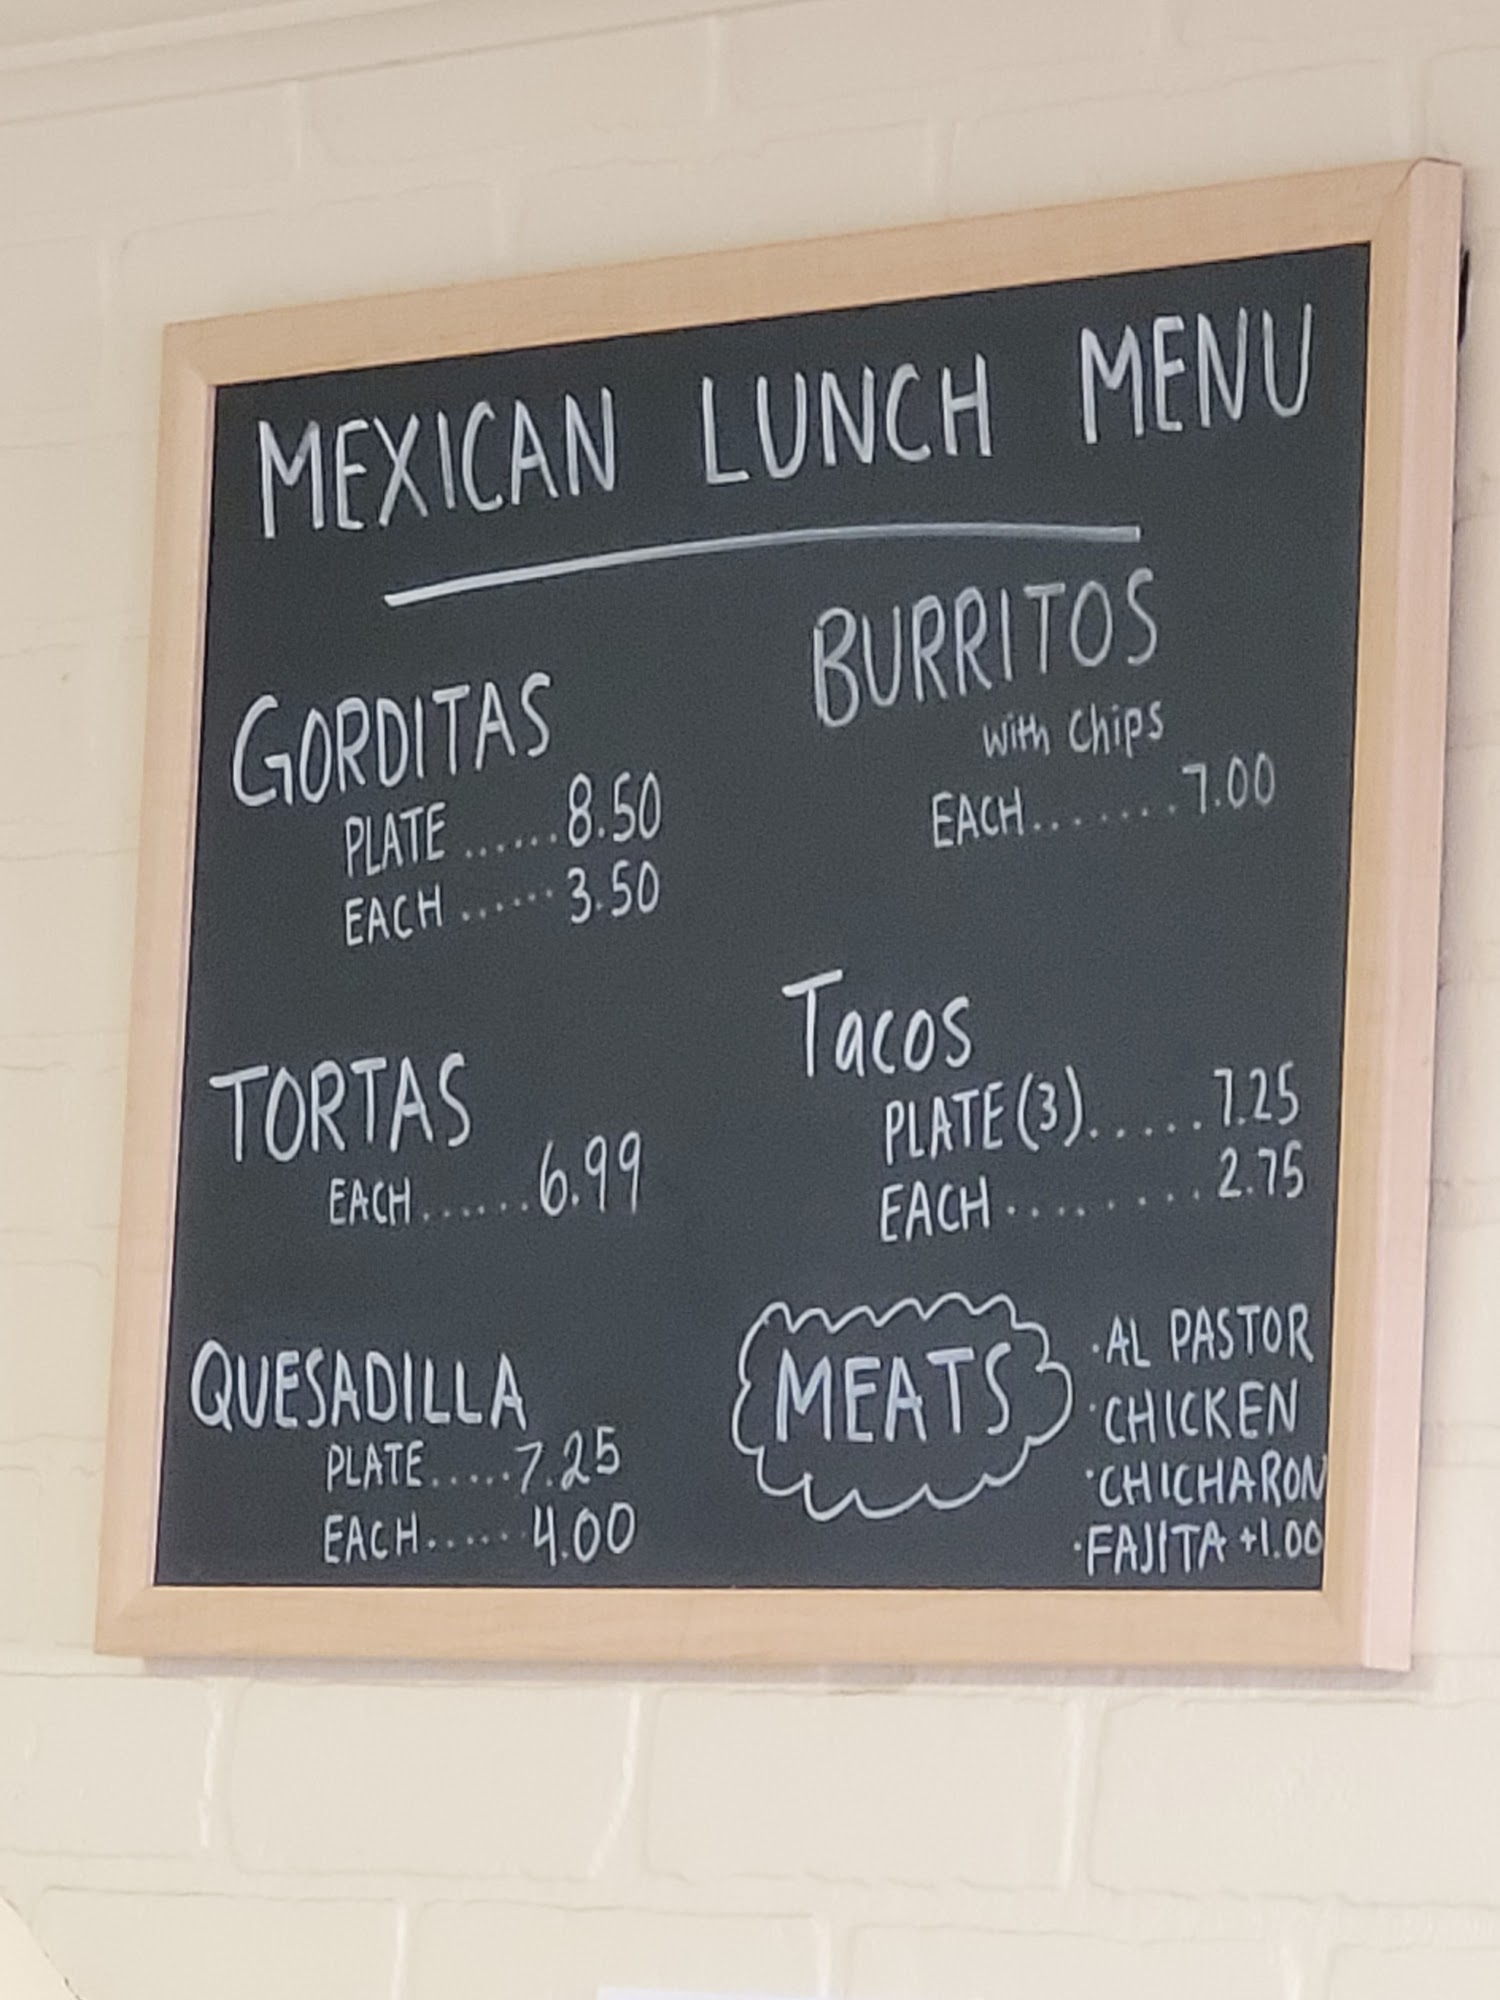 MEXICAN LUNCH MENU
GORDITAS
PLATE ...... 8.50
EACH ...... 3.50
TORTAS
EACH ...... 6.99
QUESADILLA
PLATE ..... 7.25
EACH ...... 4.00
BURRITOS
with Chips
EACH ....... 7.00
Tacos
PLATE (3) ...... 7.25
EACH ........ 2.75
MEATS
·AL PASTOR
·CHICKEN
·CHICHARON
·FAJITA +1.00